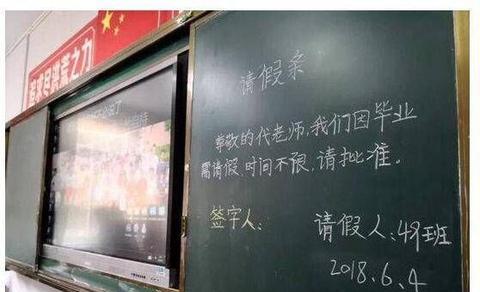 尽洪荒之力
请假条
尊敬的代老师,我们因毕业
需请假,时间不限,请批准。
签字人:
请假人:48班
2018.6.4